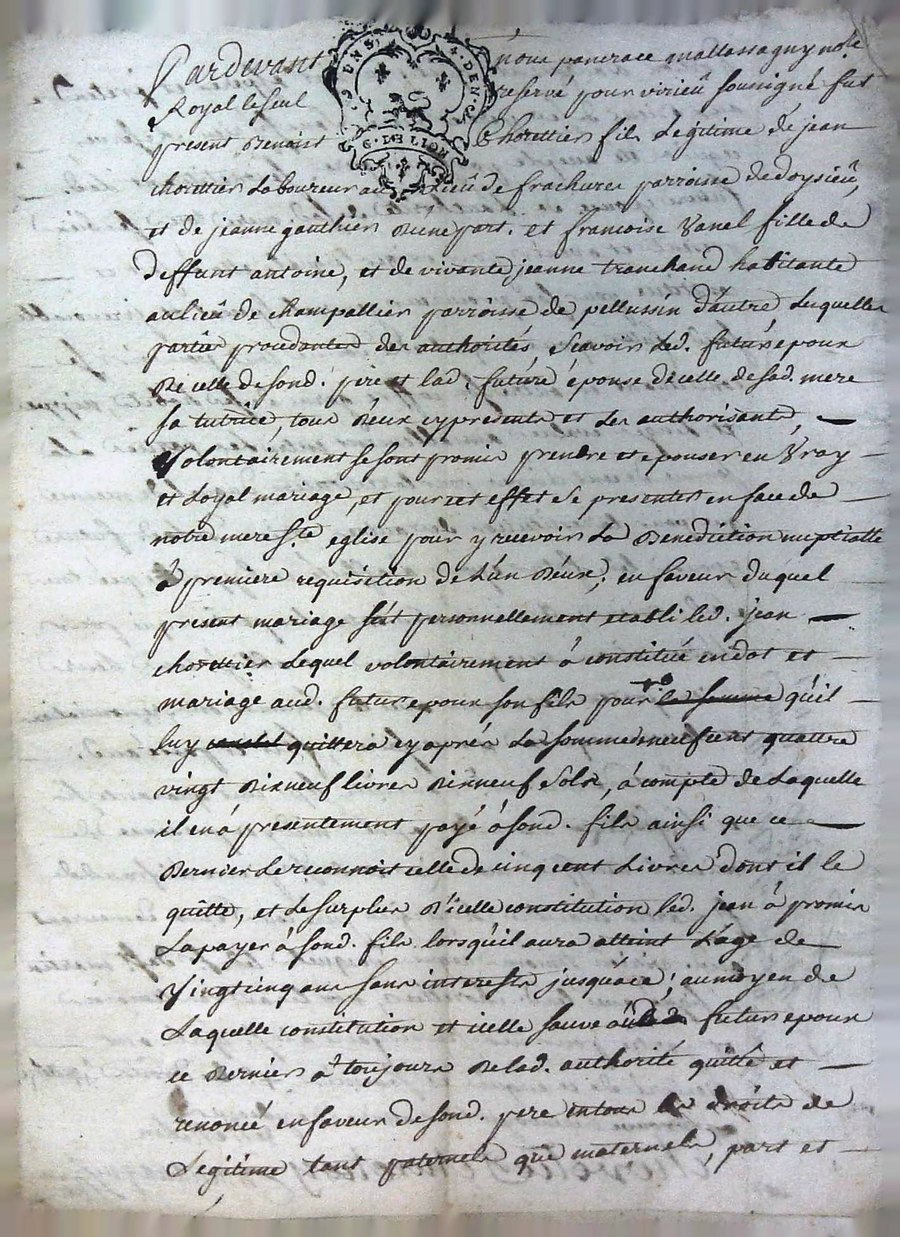 Pardevant nous pancrace mallassagny no.re
Royal le seul reservé pour virieû soussigné fut
present Benoist chorettier fils Legitime de jean
chorettier Laboureur au Lieû de frachures parroisse dedoysieû,
et de jeanne gauthier d'une part. et francoise Vanel fille de
deffunt antoine, et de vivante jeanne tranchand habitante
au lieû de champallier parroisse de pellussin d'autre Lesquelles
partie procedantes des authorités, Scavoir Led. futur epoux
de celle de sond. pere et lad. future épouse de celle de sad. mere
sa tutrice, tous deux cy presents et Les authorisants,
Volontairement se sont promis prendre et epouser en Vray
et Loyal mariage, et pour cet effet Se presenter en face de
notre mere s.te eglise pour y recevoir La Benediction nuptialle
à premiere requisition de L'un d'eux; en faveur duquel
present mariage s'ét personnellement etabli led. jean
chorettier Lequel volontairement à constitué en dot et
mariage aud. futur epoux son fils pour la somme qu'il
luy quittera cy aprés La somme de neuf cent quattre
vingt dixneuf livres dixneuf Sols, à compte de Laquelle
il en à presentement payé à sond. fils ainsi que ce
dernier Le reconnoit celle de cinq cent Livres dont il le
quitte, et Le surplus d'icelle constitution led. jean à promis
La payer à sond. fils lorsqu'il aura atteint L'age de
Vingt cinq ans sans interests jusqu'àce; au moyen de
Laquelle constitution et icelle sauve futur epoux
ce dernier à toujours de lad. authorité quitté et
renoncé en faveur de sond. pere in tous les droits de
Legitime tant paternels que maternels, part et
G. DE LION